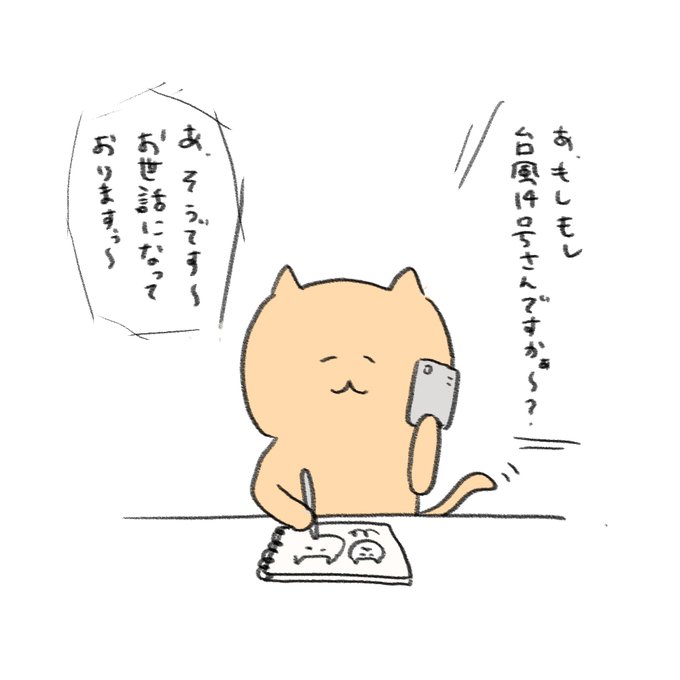 あ、もしもし
台風14号さんですかぁ〜?
あ、そうです〜
お世話になって
おりますぅ〜